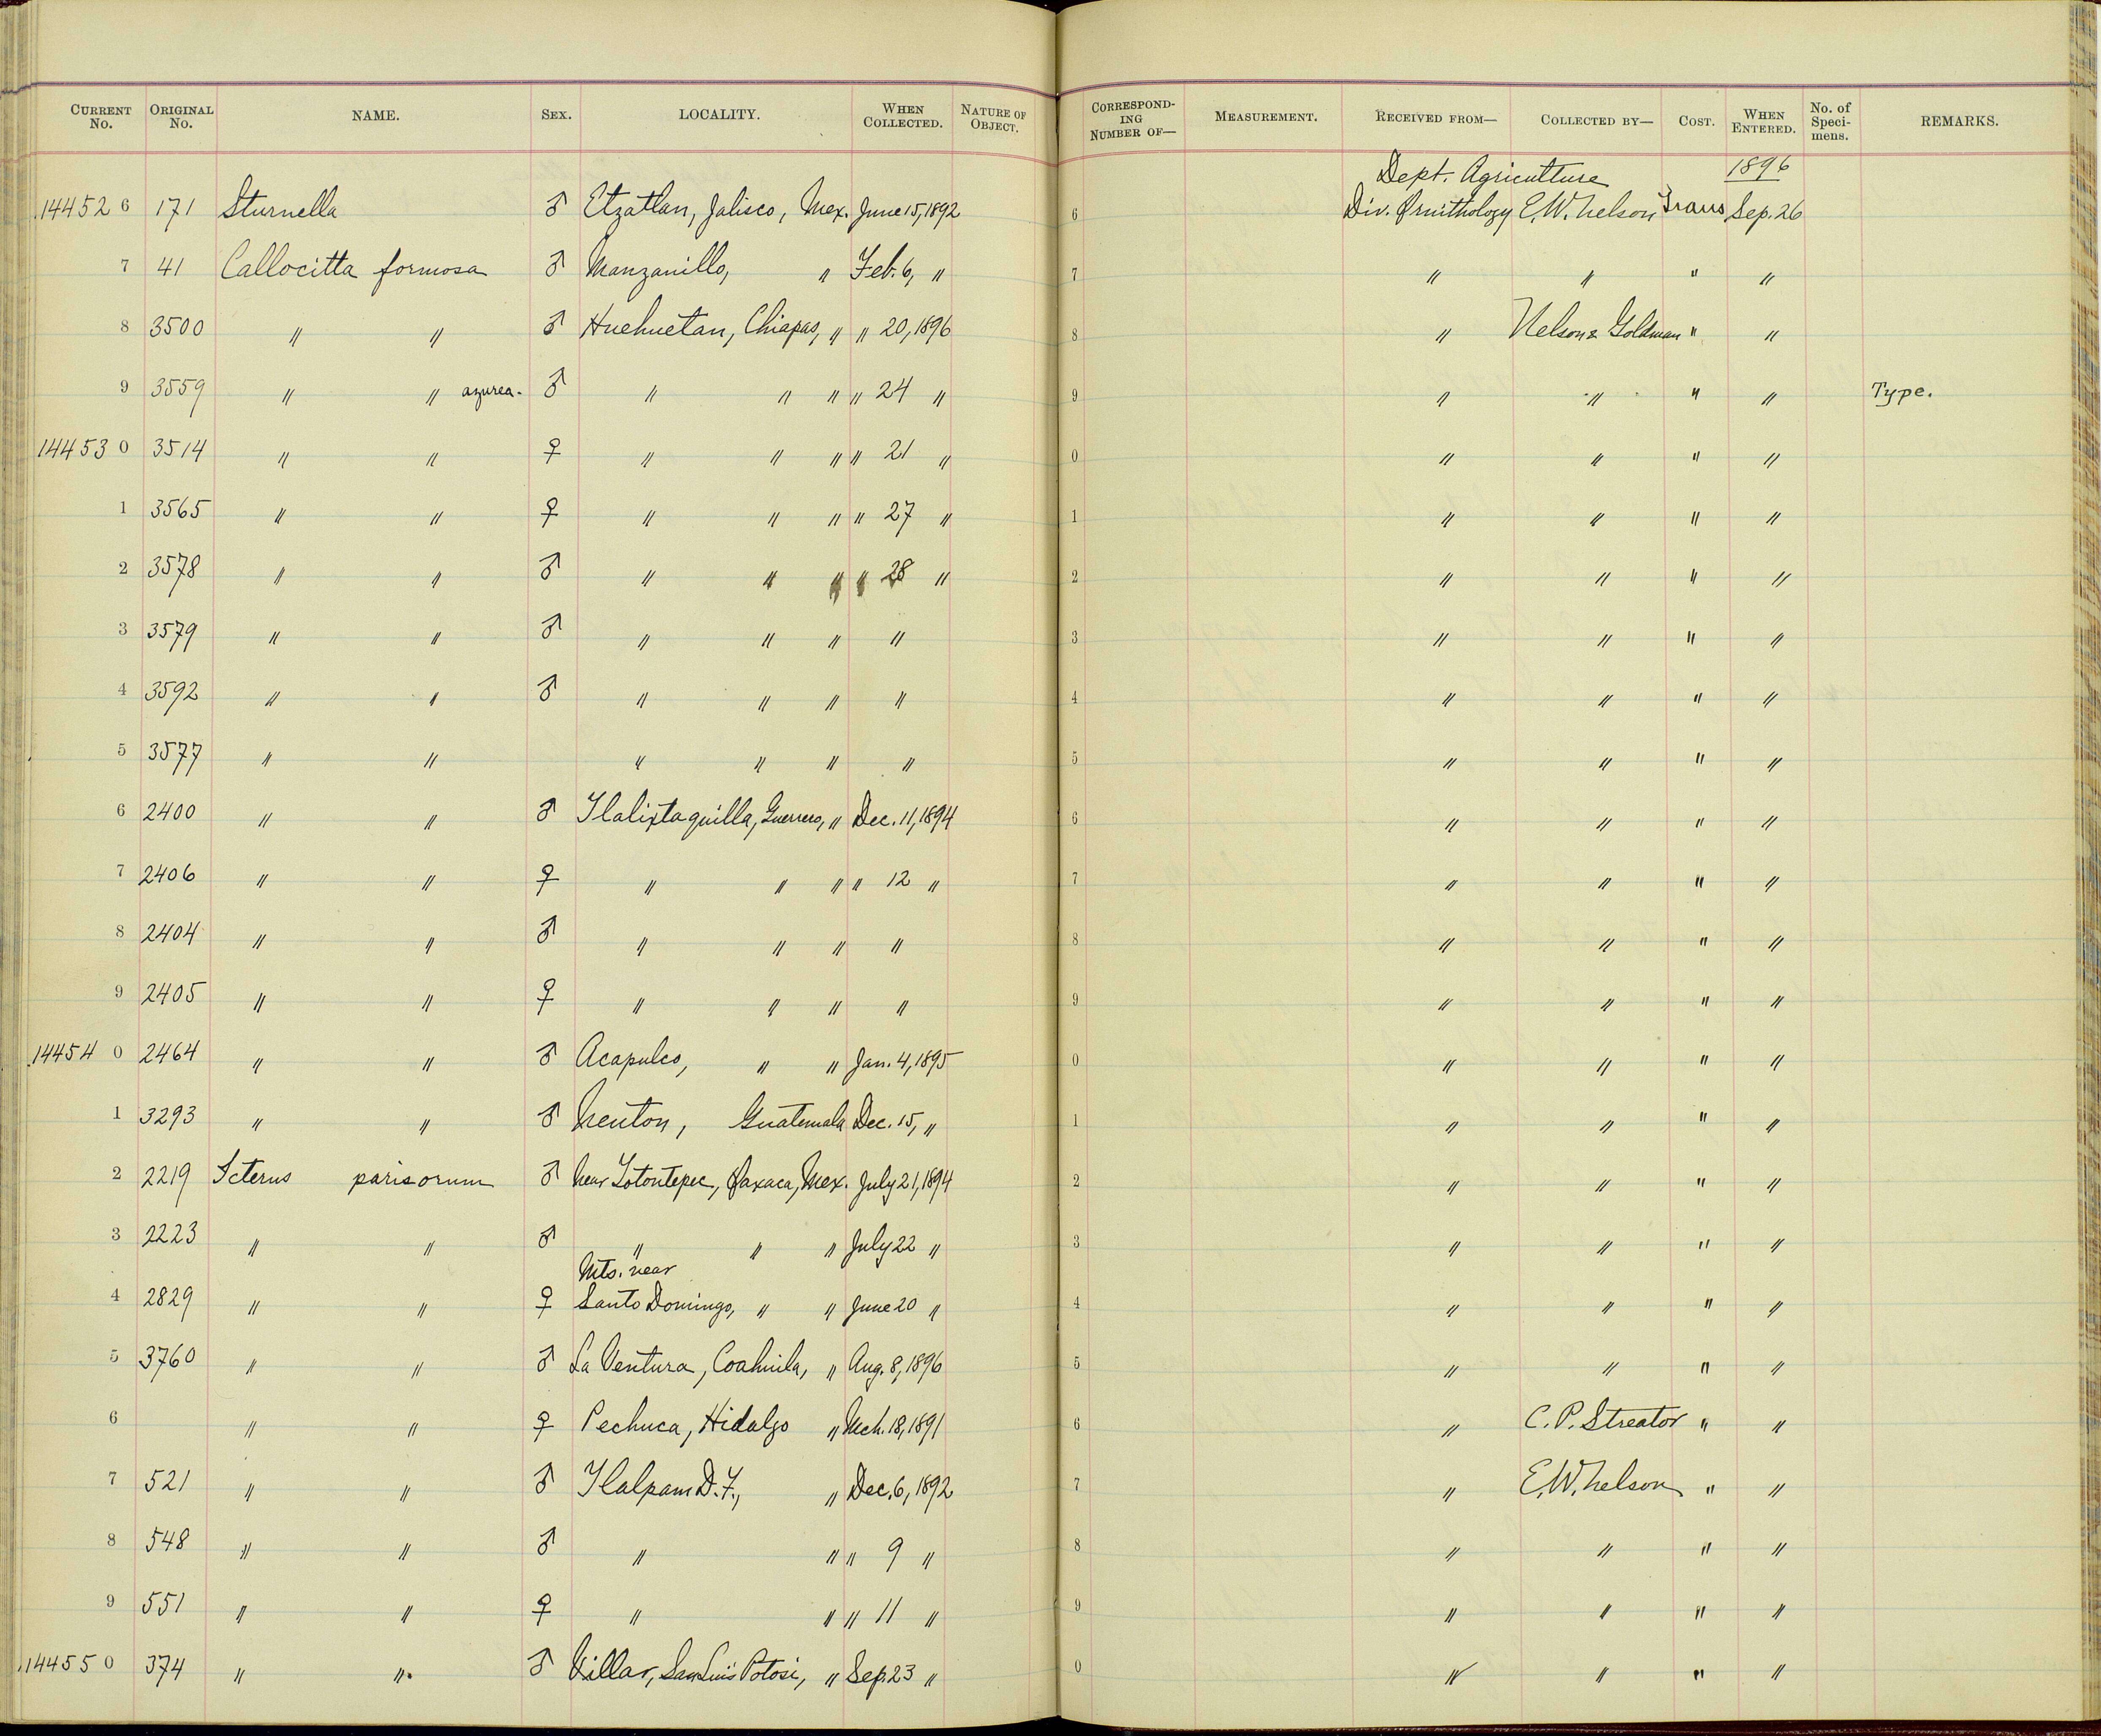 CURRENT No. ORIGINAL No. NAME. SEX. LOCALITY. WHEN COLLECTED. NATURE OF OBJECT. CORRESPONDING NUMBER OF— MEASUREMENT. RECEIVED FROM— COLLECTED BY— COST. WHEN ENTERED. No. of Specimens. REMARKS.
Dept. Agriculture 1896
14452 6 171 Sturnella ♂ Etzatlan, Jalisco, Mex. June 15, 1892 6 Div. Ornithology E.W. Nelson Trans Sep. 26
7 41 Callocitta formosa ♂ Manzanillo, " Feb. 6, " 7 " " " "
8 3500 " " ♂ Huehuetan, Chiapas, " " 20, 1896 8 " Nelson & Goldman " "
9 3559 " " azurea. ♂ " " " " 24 " 9 " " " " Type.
14453 0 3514 " " ♀ " " " " 21 " 0 " " " "
1 3565 " " ♀ " " " " 27 " 1 " " " "
2 3578 " " ♂ " " " " 28 " 2 " " " "
3 3579 " " ♂ " " " " 3 " " " "
4 3592 " " ♂ " " " " 4 " " " "
5 3577 " " " " " " 5 " " " "
6 2400 " " ♂ Tlalixtaquilla, Guerrero, " Dec. 11, 1894 6 " " " "
7 2406 " " ♀ " " " " 12 " 7 " " " "
8 2404 " " ♂ " " " " 8 " " " "
9 2405 " " ♀ " " " " 9 " " " "
14454 0 2464 " " ♂ Acapulco, " " Jan. 4, 1895 0 " " " "
1 3293 " " ♂ Nenton, Guatemala Dec. 15, " 1 " " " "
2 2219 Icterus parisorum ♂ Near Totontepec, Oaxaca, Mex. July 21, 1894 2 " " " "
3 2223 " " ♂ " " " July 22 " 3 " " " "
Mts. near
4 2829 " " ♀ Santo Domingo, " " June 20 " 4 " " " "
5 3760 " " ♂ La Ventura, Coahuila, " Aug. 8, 1896 5 " " " "
6 " " ♀ Pechuca, Hidalgo " Mch. 18, 1891 6 " C. P. Streator " "
7 521 " " ♂ Tlalpam D.F., " Dec. 6, 1892 7 " E.W. Nelson " "
8 548 " " ♂ " " " 9 " 8 " " " "
9 551 " " ♀ " " " 11 " 9 " " " "
14455 0 374 " ". ♂ Villar, San Luis Potosi, " Sep. 23 " 0 " " " "